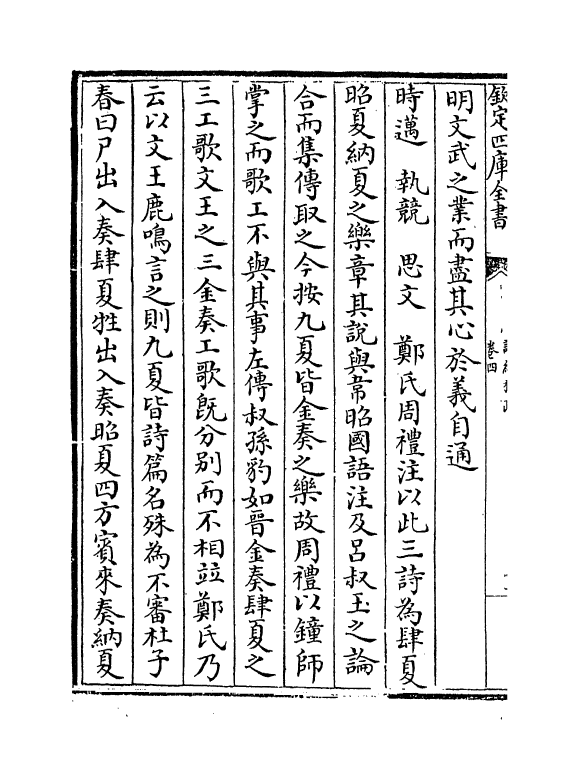 欽定四庫全書
卷四
明文武之業而盡其心於義自通
時邁　執競　思文　鄭氏周禮注以此三詩為肆夏
昭夏納夏之樂章其說與韋昭國語注及呂叔玉之論
合而集傳取之今按九夏皆金奏之樂故周禮以鐘師
掌之而歌工不與其事左傳叔孫豹如晉金奏肆夏之
三工歌文王之三金奏工歌既分别而不相竝鄭氏乃
云以文王鹿鳴言之則九夏皆詩篇名殊為不審杜子
春曰尸出入奏肆夏牲出入奏昭夏四方賓來奏納夏